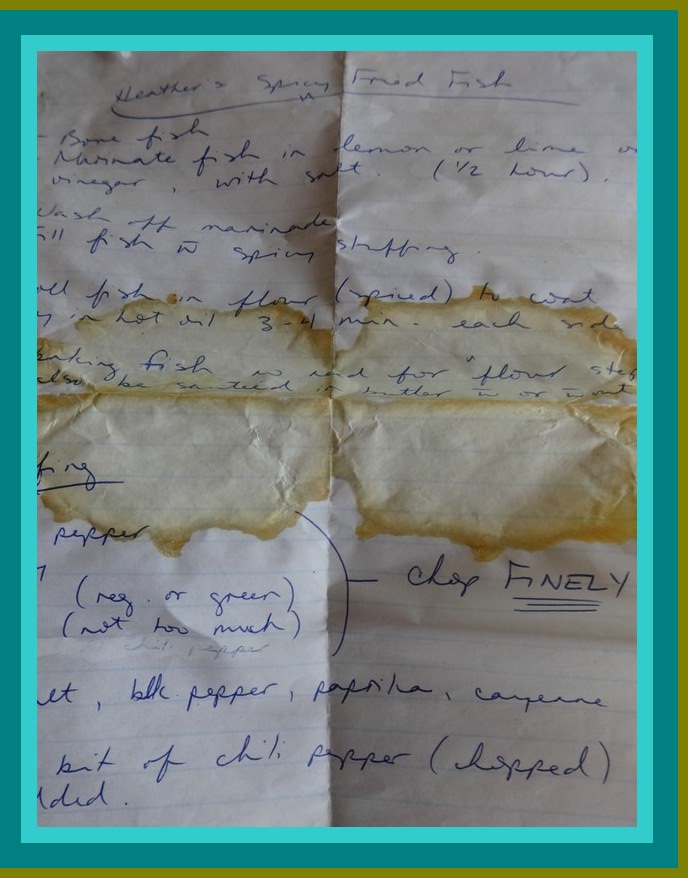 Heather's Spicy Fried Fish
- Bone fish
- Marinate fish in lemon or lime or
vinegar, with salt. (1/2 hour).
Wash off marinade
fish w̅ spicy stuffing.
fish in flour (spiced) to coat
in hot oil 3-4 min. each side
fish no need for "flour step
also be sauteed in butter w̅ or w̅out
fing
pepper
(reg. or green)
(not too much)
chili pepper
chop FINELY
, blk pepper, paprika, cayenne
bit of chili pepper (chopped)
ded.